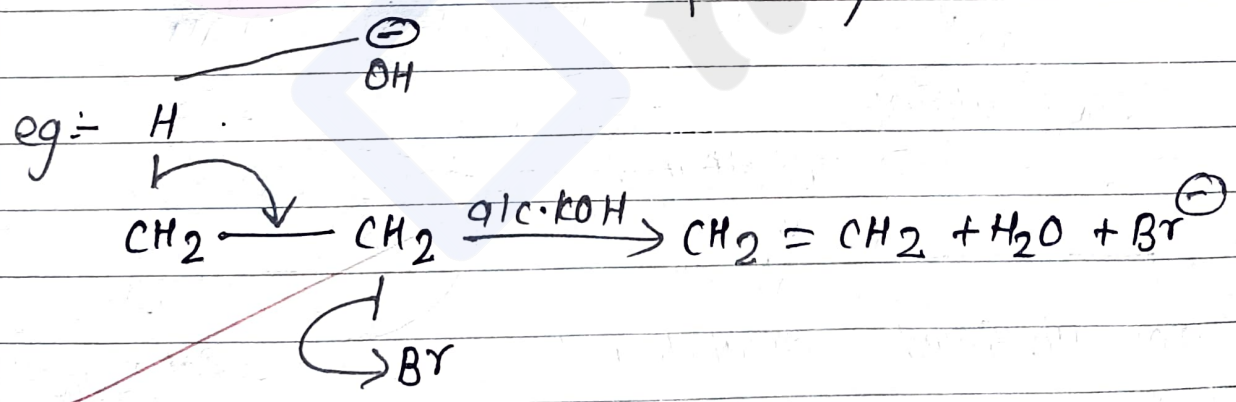 ⊖
OH
eg:- H
CH2 — CH2 alc.KOH → CH2 = CH2 + H2O + Br⊖
Br